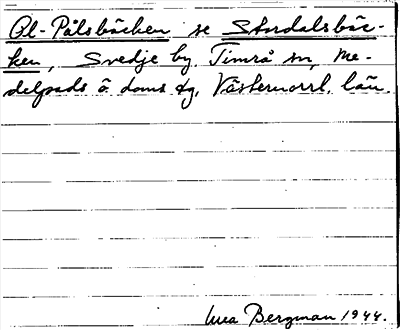 Ol-Pålsbäcken se Stordalsbäc-
ken, Svedje by, Timrå sn, Me-
delpads ö. doms tg, Västernorrl. län.
Bergman 1944.